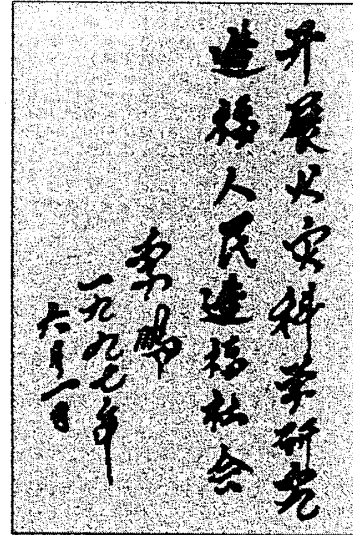 开展火灾科学研究
造福人民造福社会
李鹏
一九九七年
六月一日